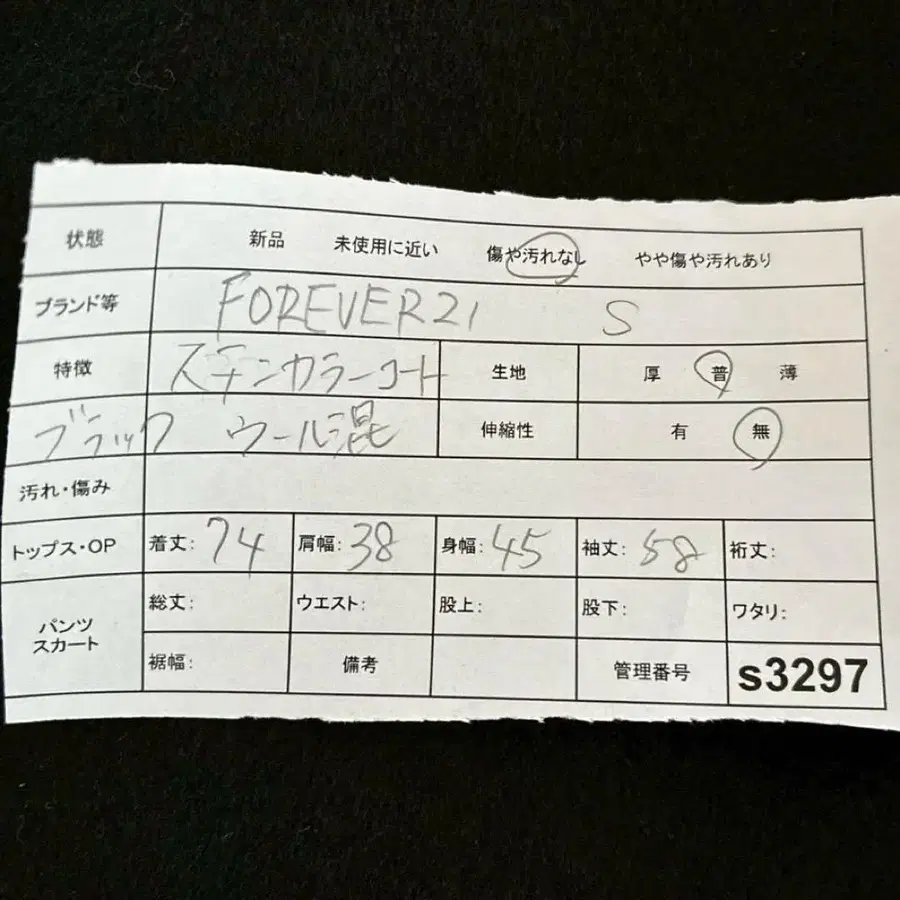 状態 新品 未使用に近い 傷や汚れなし やや傷や汚れあり
ブランド等 FOREVER21 S
特徴 ステンカラーコート 生地 厚 普 薄
ブラック ウール混 伸縮性 有 無
汚れ・傷み
トップス・OP 着丈: 74 肩幅: 38 身幅: 45 袖丈: 58 裄丈:
パンツ スカート 総丈: ウエスト: 股上: 股下: ワタリ:
裾幅: 備考 管理番号 s3297